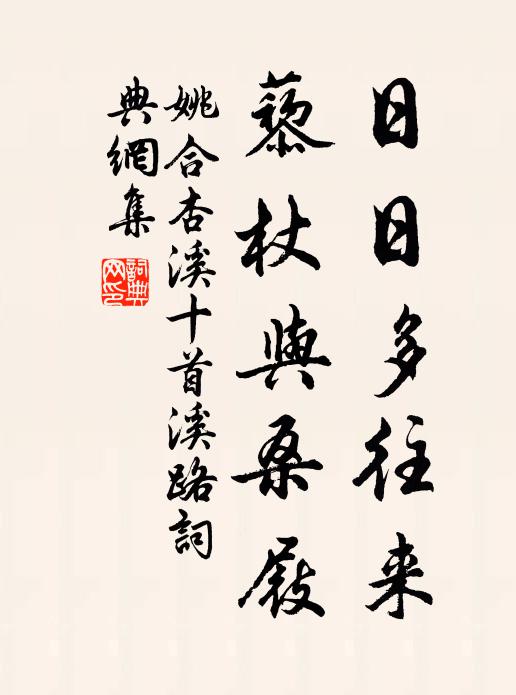 日日多往来
藜杖與桑屐
姚合杏溪十首溪路詞
典網集
詞典網印